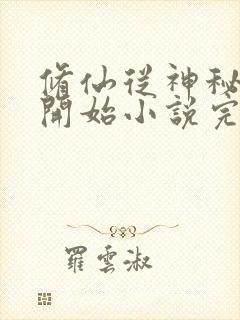 修仙從神秘
開始小說完
羅雲淑